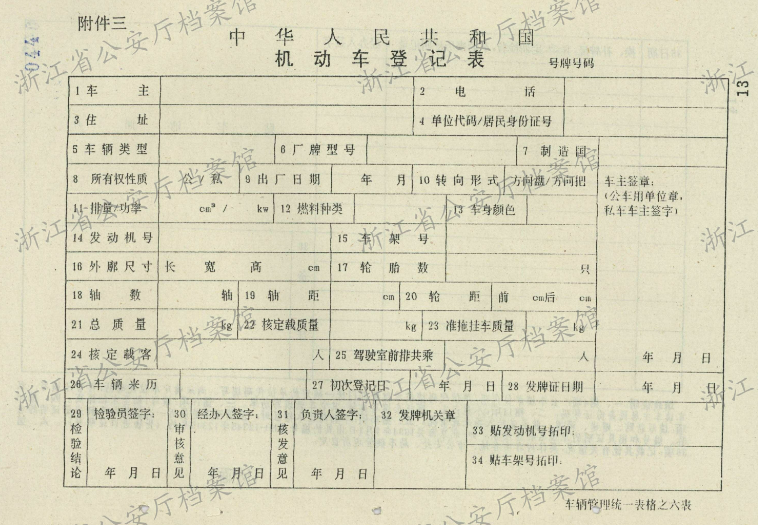 附件三
中华人民共和国
机动车登记表
号牌号码
13
1 车主 2 电话
3 住址 4 单位代码/居民身份证号
5 车辆类型 6 厂牌型号 7 制造国
8 所有权性质 公／私 9 出厂日期 年 月 10 转向形式 方向盘/方向把
车主签章：
(公车用单位章，
私车车主签字)
11 排量/功率 cm³ / kw 12 燃料种类 13 车身颜色
14 发动机号 15 车架号
16 外廓尺寸 长 宽 高 cm 17 轮胎数 只
18 轴数 轴 19 轴距 cm 20 轮距 前 cm后 cm
21 总质量 kg 22 核定载质量 kg 23 准拖挂车质量 kg
24 核定载客 人 25 驾驶室前排共乘 人 年 月 日
26 车辆来历 27 初次登记日 年 月 日 28 发牌证日期 年 月 日
29 检验结论 检验员签字： 年 月 日 30 审核意见 经办人签字： 年 月 日 31 核发意见 负责人签字： 年 月 日 32 发牌机关章
33 贴发动机号拓印：
34 贴车架号拓印：
车辆管理统一表格之六表
浙江省公安厅档案馆